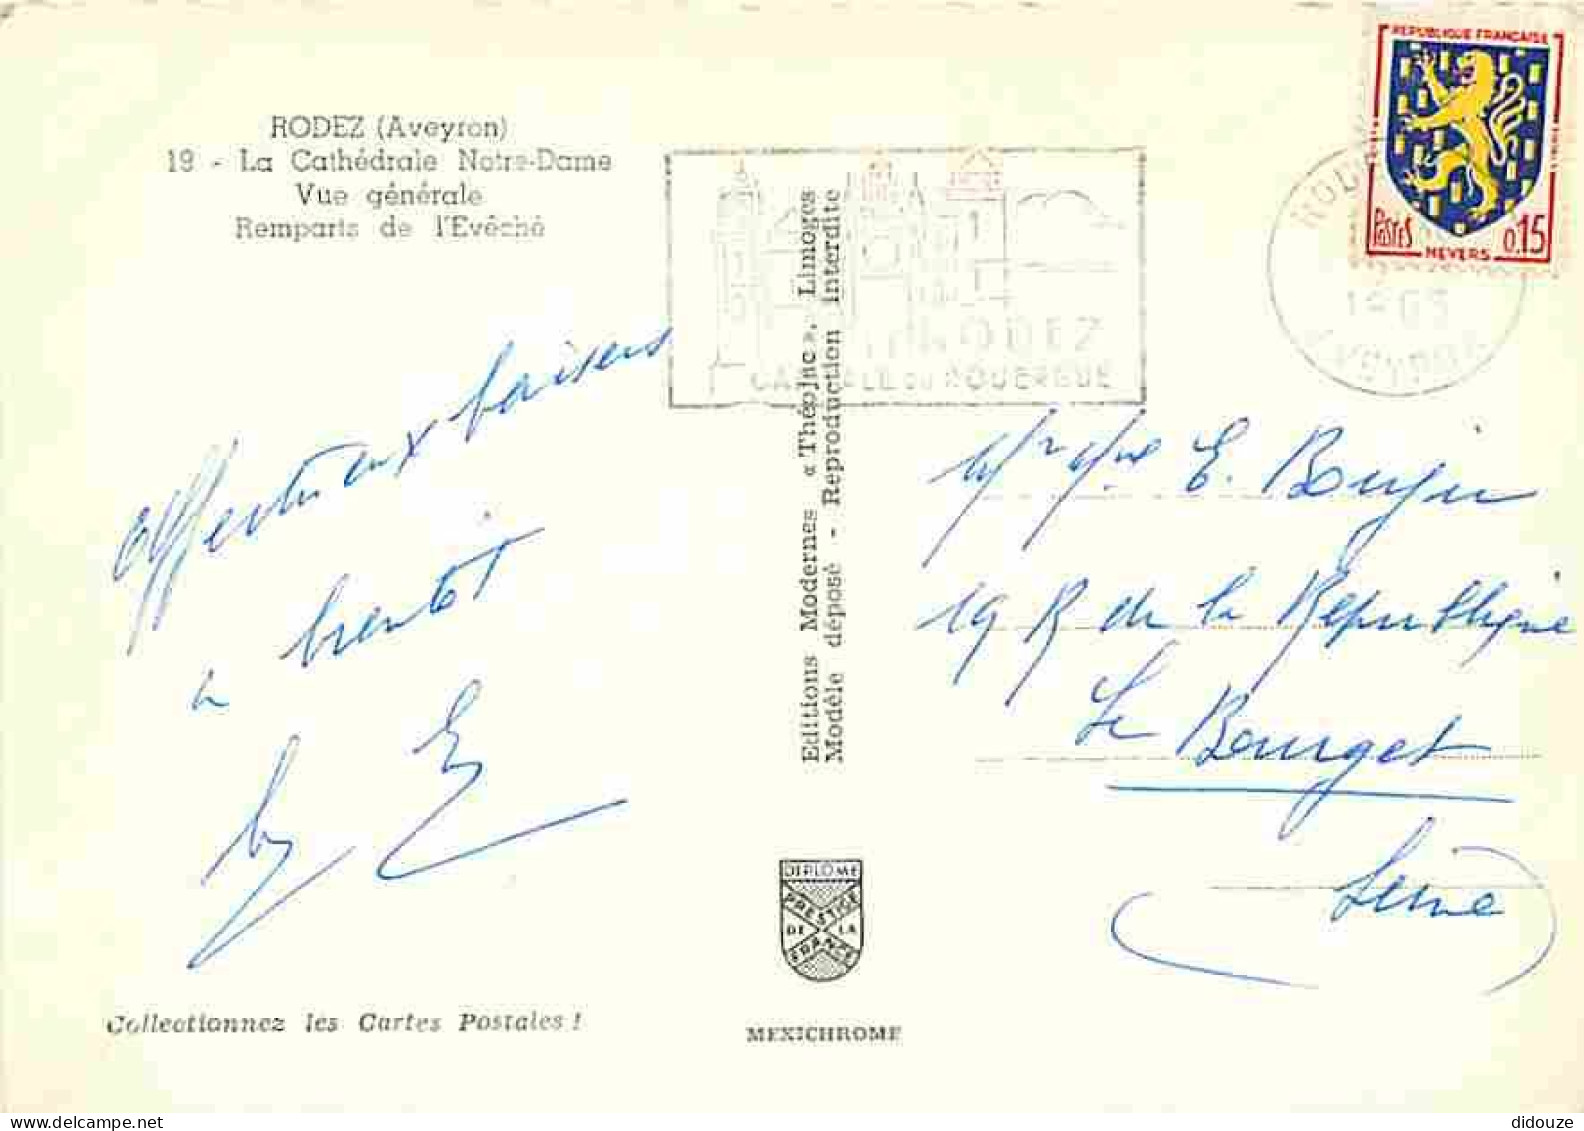 RODEZ (Aveyron)
19 - La Cathédrale Notre-Dame
Vue générale
Remparts de l'Evêché
affectueux baisers
a bientôt
Collectionnez les Cartes Postales !
Editions Modernes « Théojac », Limoges
Modèle déposé - Reproduction Interdite
DIPLOME
PRESTIGE
DE LA
FRANCE
MEXICHROME
RODEZ
DU ROUERGUE
REPUBLIQUE FRANÇAISE
POSTES
NEVERS
0,15
E.
19 R de la République
Le Bourget
Seine
didouze